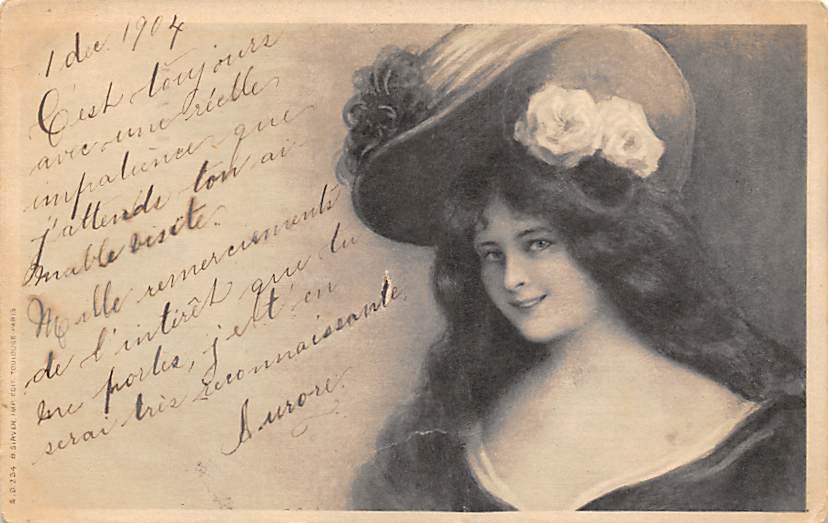 1 dec. 1904
C'est toujours
avec une réelle
impatience que
j'attends ton ai-
mable visite.
Mille remerciements
de l'intérêt que tu
me portes, j e t'en
serai très reconnaissante.
Aurore.
S.D.234 B. SIRVEN, IMP. EDIT. TOULOUSE-PARIS